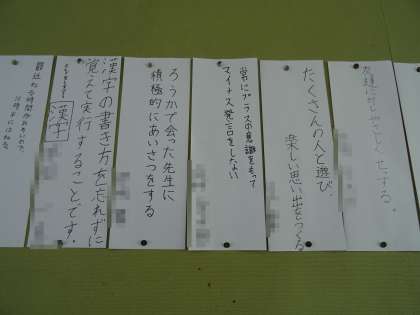 友達に対しやさしくせっする。
たくさんの人と遊び、
楽しい思い出をつくる
常にプラスの意識をもって
マイナス発言をしない
ろうかで会った先生に
積極的にあいさつをする
漢字の書き方を忘れずに
覚えて実行することです。
漢字
最近ねる時間がおそいので、
10時半にはねる。